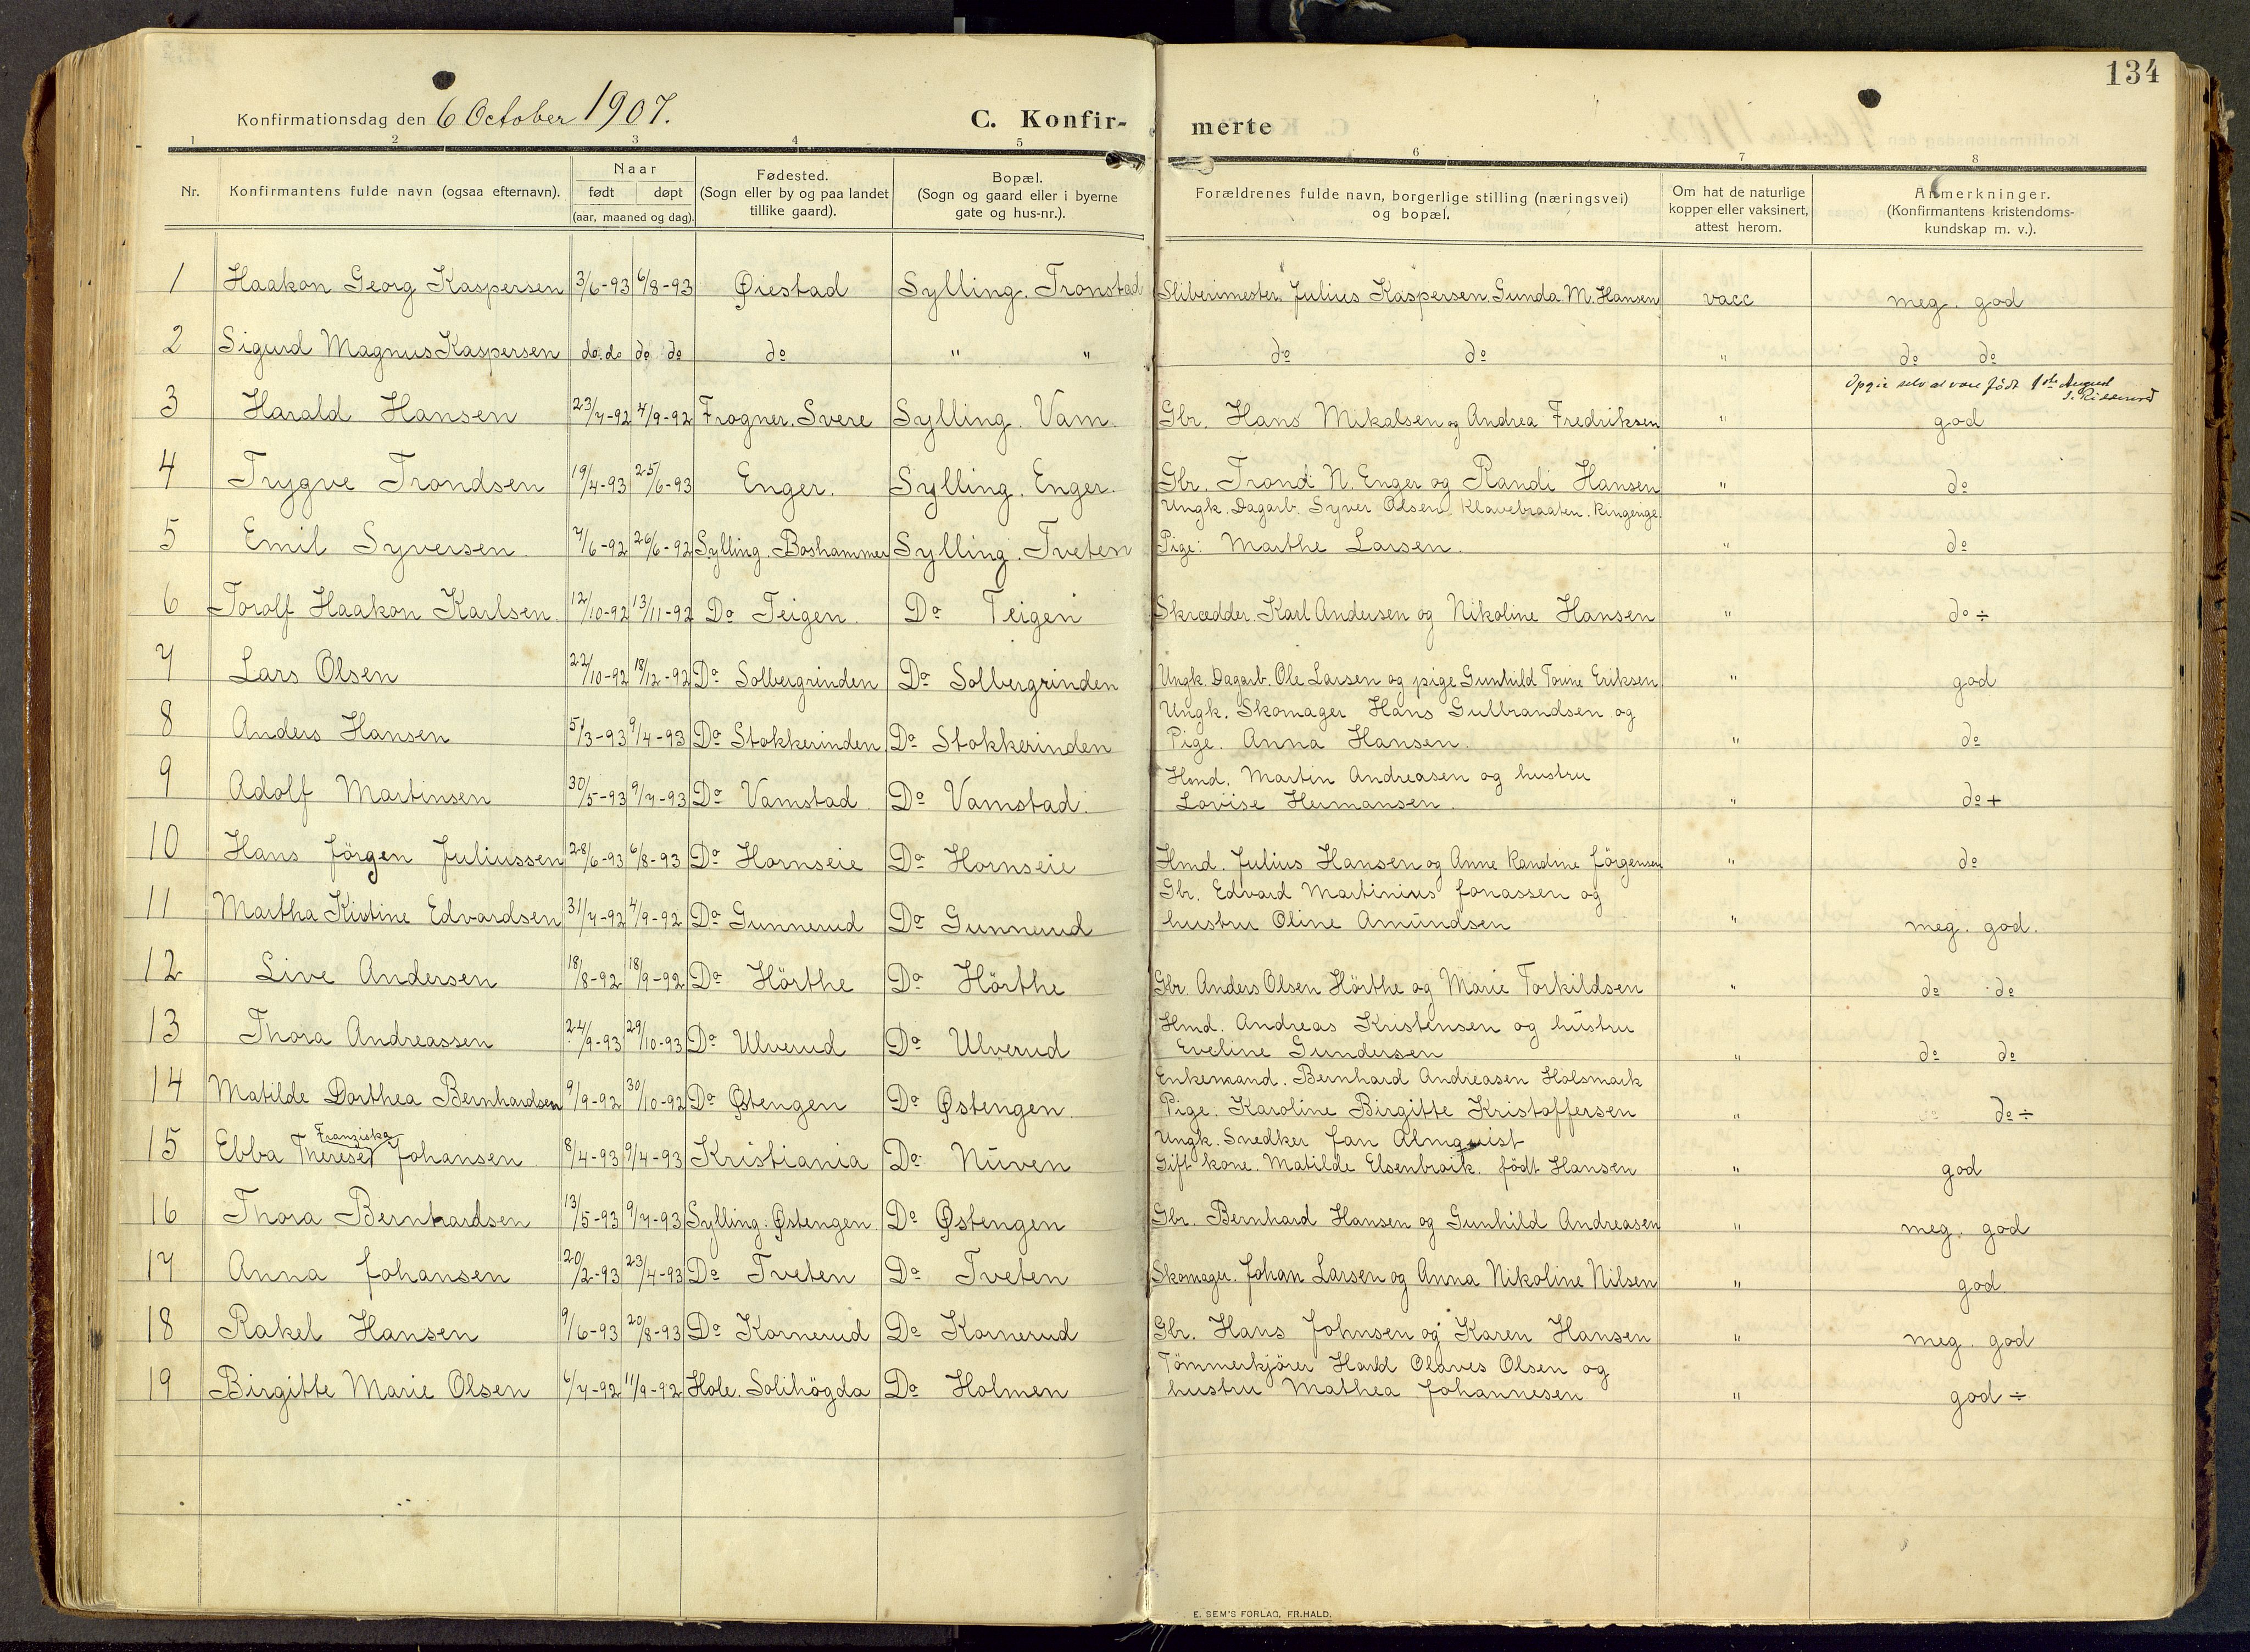 134
Konfirmationsdag den 6 October 1907. C. Konfir- merte
1 2 3 4 5 6 7 8
Nr. Konfirmantens fulde navn (ogsaa efternavn). Naar født døpt (aar, maaned og dag). Fødested. (Sogn eller by og paa landet tillike gaard). Bopæl. (Sogn og gaard eller i byerne gate og hus-nr.). Forældrenes fulde navn, borgerlige stilling (næringsvei) og bopæl. Om hat de naturlige kopper eller vaksinert, attest herom. Anmerkninger. (Konfirmantens kristendoms-kundskap m. v.).
1 Haakon Georg Kaspersen 3/6-93 6/8-93 Øiestad Sylling. Tronstad Sliberimester. Julius Kaspersen. Gunda M. Hansen vacc meg. god
2 Sigurd Magnus Kaspersen do. do do do do " " do do " do do
Opgir selv at være født 1ste August
3 Harald Hansen 23/7-92 4/9-92 Frogner. Svere Sylling. Vam. Gbr. Hans Mikalsen og Andrea Fredriksen " god
4 Trygve Trondsen 19/4-93 25/6-93 Enger. Sylling. Enger. Gbr. Trond N. Enger og Randi Hansen " do
Ungk. Dagarb. Syver Olsen. Klavebraaten. Ringerige.
5 Emil Syversen 7/6-92 26/6-92 Sylling. Boshammer Sylling. Tveten Pige: Marthe Larsen. " do
6 Torolf Haakon Karlsen. 12/10-92 13/11-92 Do Teigen. Do Teigen Skrædder. Karl Andersen og Nikoline Hansen " do ÷
7 Lars Olsen 22/10-92 18/12-92 Do Solbergrinden Do Solbergrinden Ungk. Dagarb. Ole Larsen og pige Gunhild Torine Eriksen " god
Ungk. Skomager Hans Gulbrandsen og
8 Anders Hansen 5/3-93 9/4-93 Do Stokkerinden Do Stokkerinden Pige. Anna Hansen. " do
Hmd. Martin Andreasen og hustru
9 Adolf Martinsen 30/5-93 9/7-93 Do Vamstad Do Vamstad. Lovise Hermansen. " do +
10 Hans Jörgen Juliussen 28/6-93 6/8-93 Do Hornseie Do Hornseie Hmd. Julius Hansen og Anne Randine Jörgensen " do
Gbr. Edvard Martinius Jonassen og
11 Martha Kistine Edvardsen 31/7-92 4/9-92 Do Gunnerud Do Gunnerud hustru Oline Amundsen " meg. god.
12 Live Andersen 18/8-92 18/9-92 Do Hörthe Do Hörthe Gbr. Anders Olsen Hörthe og Marie Torkildsen " do do
Hmd. Andreas Kristensen og hustru
13 Thora Andreassen 24/9-93 29/10-93 Do Ulverud Do Ulverud Eveline Gundersen " do do
Enkemand. Bernhard Andreasen Holsmark
14 Matilde Dorthea Bernhardsen 9/9-92 30/10-92 Do Østengen Do Østengen. Pige. Karoline Birgitte Kristoffersen " do ÷
Franziska Ungk. Snedker Jan Almquist
15 Ebba Therese Johansen 8/4-93 9/4-93 Kristiania Do Nuven Gift kone. Matilde Elsenbroik. født Hansen " god
16 Thora Bernhardsen 13/5-93 9/7-93 Sylling. Østengen. Do Østengen Gbr. Bernhard Hansen og Gunhild Andreasen " meg. god
17 Anna Johansen 20/2-93 23/4-93 Do Tveten Do Tveten Skomager. Johan Larsen og Anna Nikoline Nilsen " god
18 Rakel Hansen 9/6-93 20/8-93 Do Kornerud Do Kornerud Gbr. Hans Johnsen og Karen Hansen " meg. god
Tömmerkjörer Harald Olaves Olsen og
19 Birgitte Marie Olsen 6/7-92 11/9-92 Hole. Solihögda Do Holmen hustru Mathea Johannesen " god ÷
E. SEM'S FORLAG, FR.HALD.